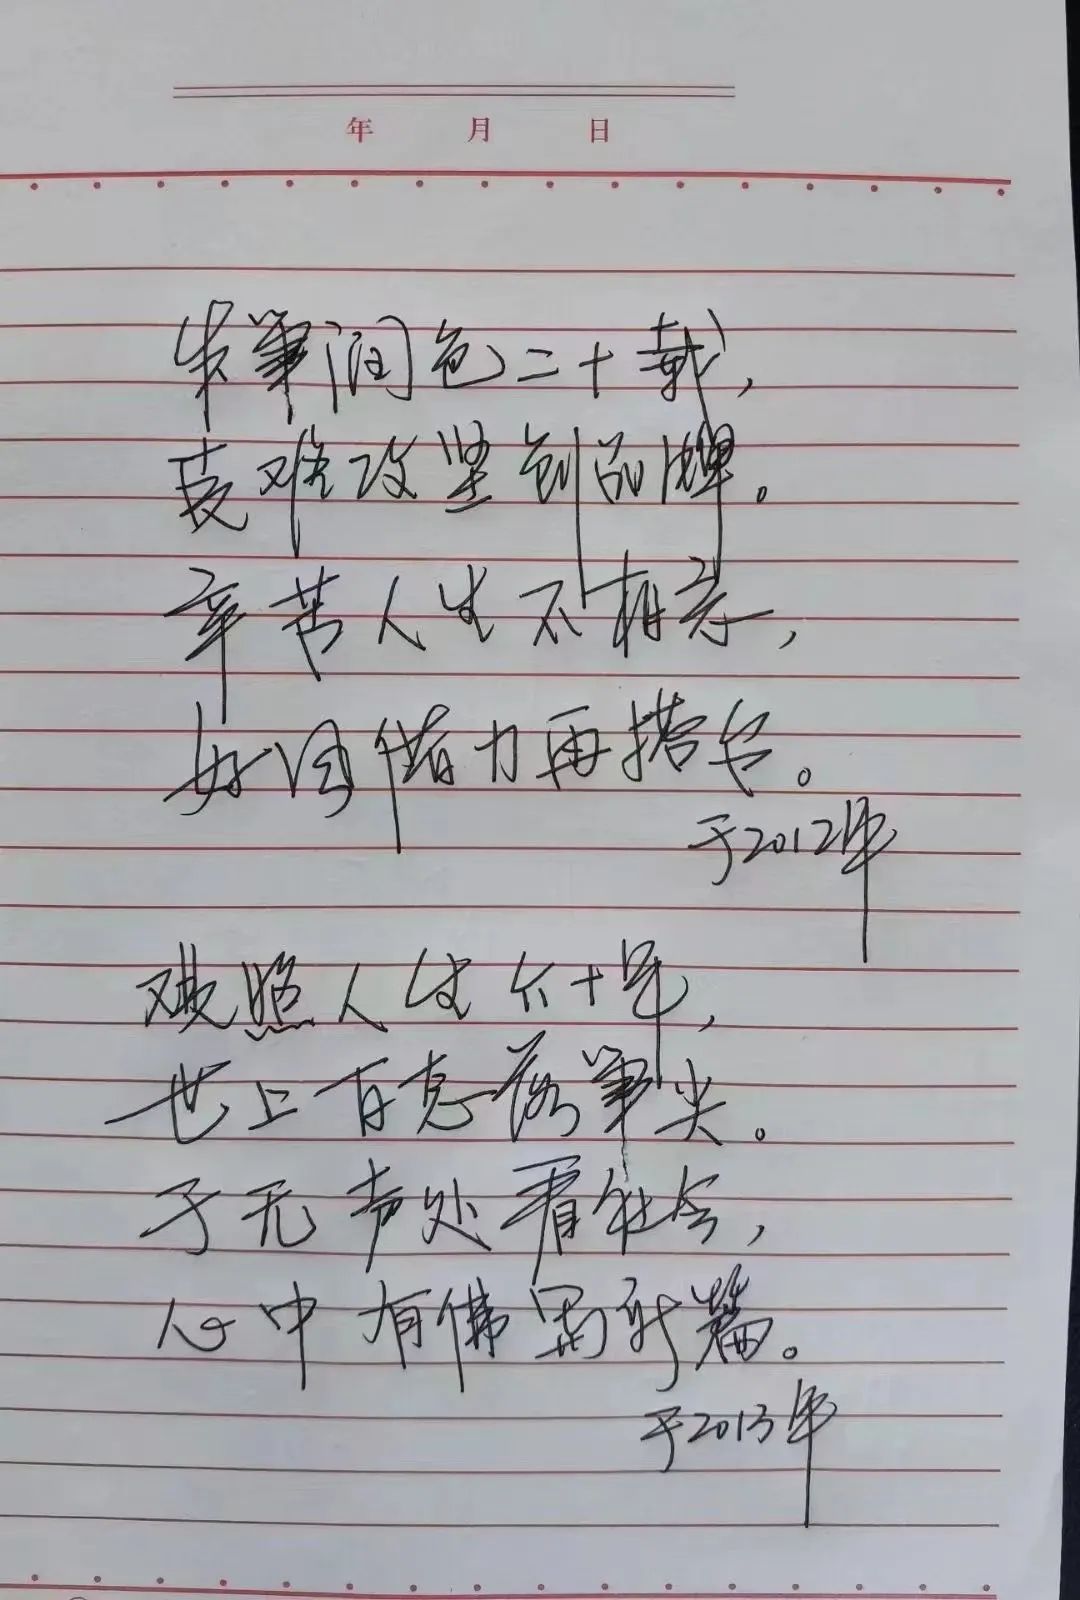 年 月 日
朱笔润色二十载,
艰难攻坚创品牌。
辛苦人生不相弃,
好风借力再搭台。
于2012年
观照人生六十年,
世上百态落笔尖。
于无声处看社会,
心中有佛寫新篇。
于2013年